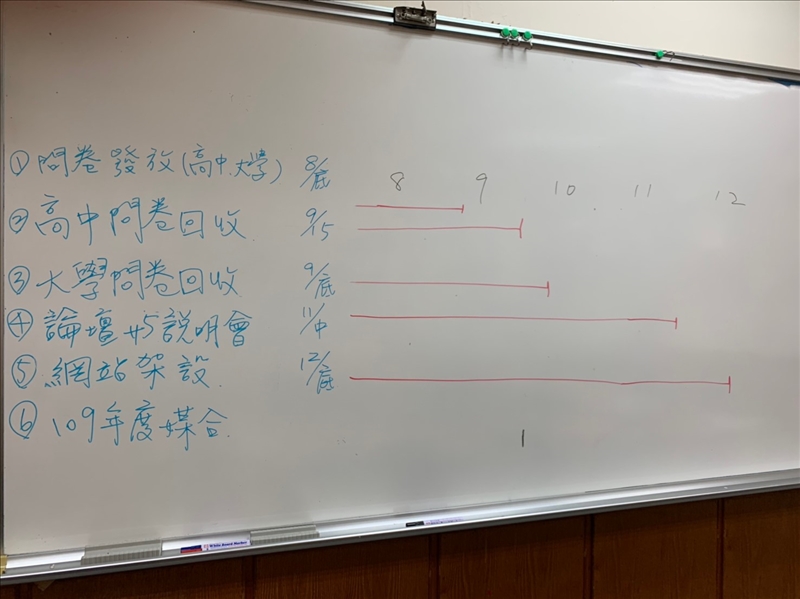 ①問卷發放(高中.大學) 8/底
8 9 10 11 12
②高中問卷回收 9/15
③大學問卷回收 9/底
④論壇与説明會 11/中
⑤網站架設 12/底
⑥109年度媒合
White Board Marker